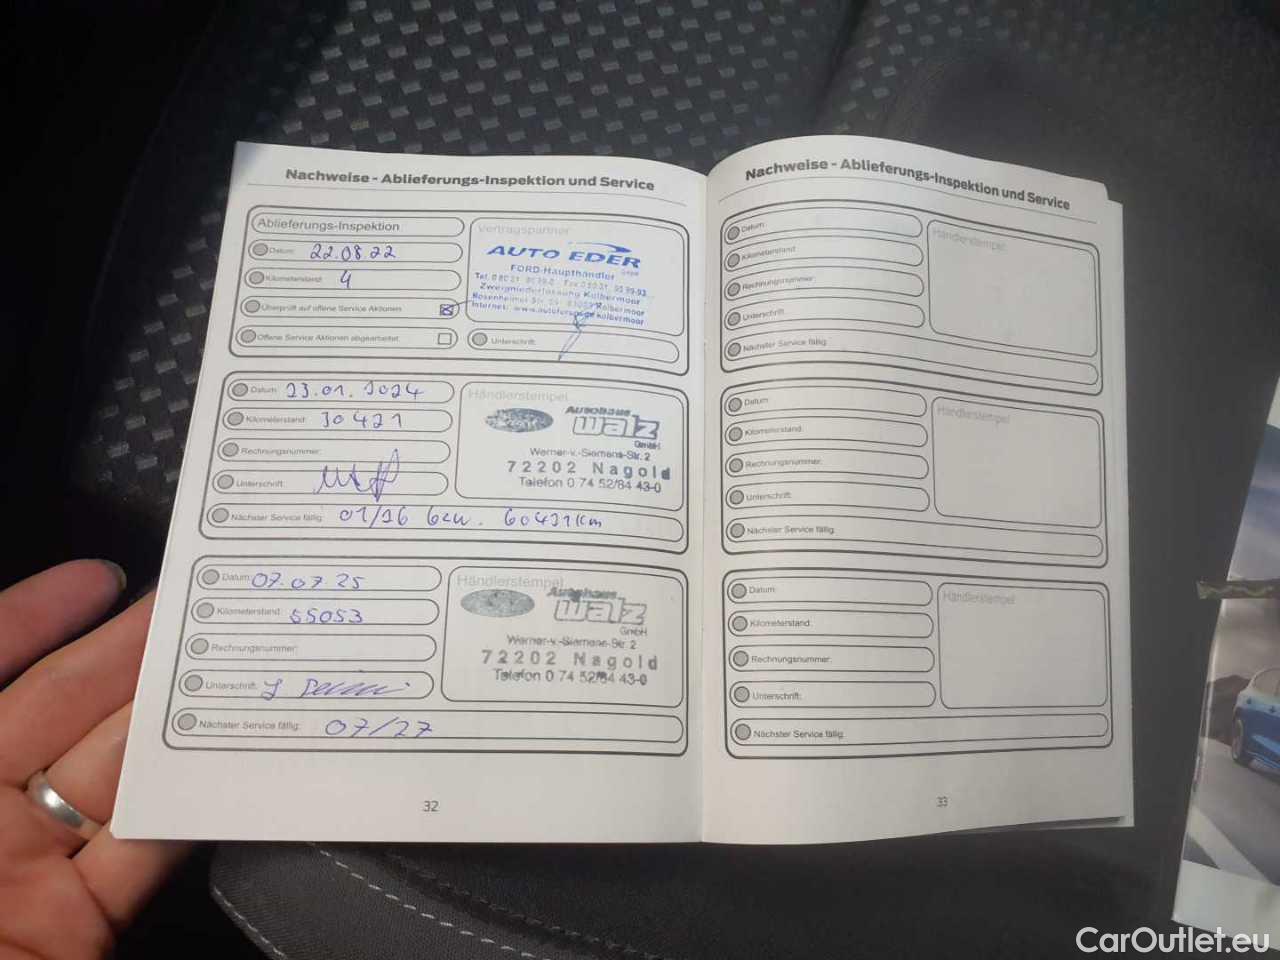 Nachweise - Ablieferungs-Inspektion und Service
Ablieferungs-Inspektion
Datum: 22.08.22
Kilometerstand: 4
Überprüft auf offene Service Aktionen
Offene Service Aktionen abgearbeitet
Vertragspartner
AUTO EDER
GmbH
FORD-Haupthändler
Zweigniederlassung Kolbermoor
Unterschrift:
Datum: 23.01.2024
Kilometerstand: 30421
Rechnungsnummer:
Unterschrift:
Nächster Service fällig: 01/26 bzw. 60421km
Händlerstempel
Autohaus
walz
GmbH
Werner-v.-Siemens-Str. 2
72202 Nagold
Telefon 0 74 52/84 43-0
Datum: 07.07.25
Kilometerstand: 55053
Rechnungsnummer:
Unterschrift:
Nächster Service fällig: 07/27
Händlerstempel
Autohaus
walz
GmbH
Werner-v.-Siemens-Str. 2
72202 Nagold
Telefon 0 74 52/84 43-0
32
Nachweise - Ablieferungs-Inspektion und Service
Datum:
Kilometerstand:
Rechnungsnummer:
Unterschrift:
Nächster Service fällig:
Händlerstempel
Datum:
Kilometerstand:
Rechnungsnummer:
Unterschrift:
Nächster Service fällig:
Händlerstempel
Datum:
Kilometerstand:
Rechnungsnummer:
Unterschrift:
Nächster Service fällig:
Händlerstempel
33
CarOutlet.eu